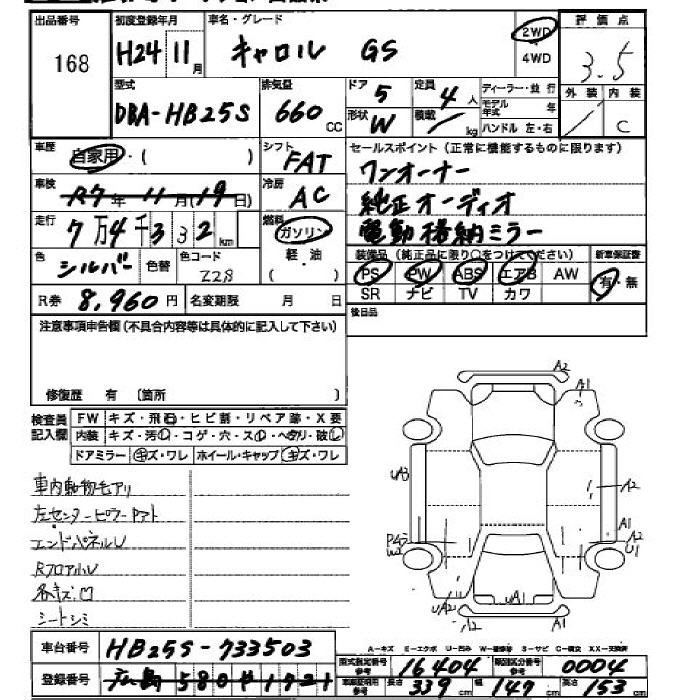 出品番号
168
初度登録年月
H24 11月
車名・グレード
キャロル GS
2WD
4WD
評価点
3.5
外装 内装
/ C
型式
DBA-HB25S
排気量
660 CC
ドア
5
形状
W
定員
4人
積載
/ kg
ディーラー・並行
モデル年式 年
ハンドル 左・右
車歴
自家用・( )
車検
R7年11月(19日)
走行
7万4千332km
色
シルバー
色替
色コード
Z2S
シフト
FAT
冷房
AC
燃料
ガソリン
軽・油
( )
セールスポイント(正常に機能するものに限ります)
ワンオーナー
純正オーディオ
電動格納ミラー
装備品(純正品に限り○をつけてください)
PS PW ABS エアB AW
SR ナビ TV カワ
新車保証書
有・無
R券 8,960円
名変期限 月 日
後日品
注意事項申告欄(不具合内容等は具体的に記入して下さい)
修復歴 有 (箇所 )
検査員記入欄
FW キズ・飛石・ヒビ割・リペア跡・X要
内装 キズ・汚レ・コゲ・穴・スレ・ヘタリ・破レ
ドアミラー キズ・ワレ ホイール・キャップ キズ・ワレ
車内動物毛アリ
左センターピラーアト
エンドパネルU
RフロアハU
各キズ凹
シートシミ
A2
A1
UA3
A2
A1
U1
P4S
W2
UA2
UA2
A1
A-キズ E-エクボ U-凹み W-補修等 S-サビ C-腐食 XX-交換済
車台番号
HB25S-733503
登録番号
広島 580 1721
型式指定番号 参考
16404
類別区分番号 参考
0004
車庫証明用 参考
長さ 339cm
幅 147cm
高さ 153cm